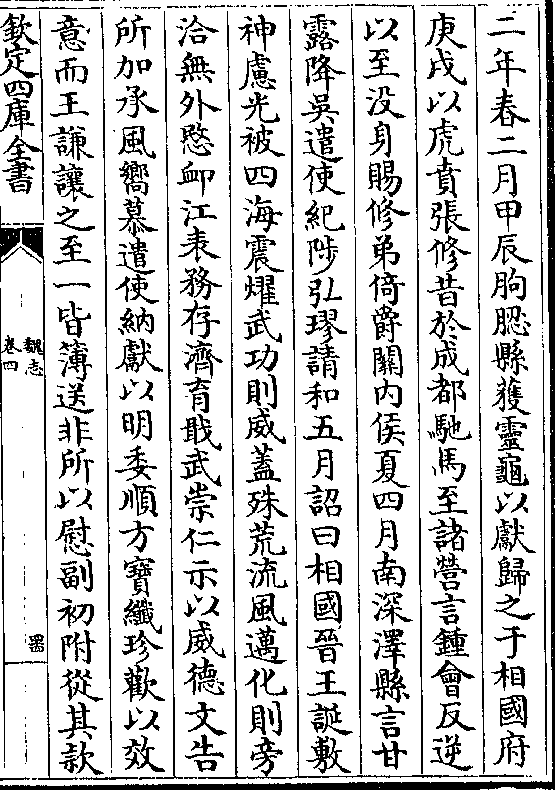 二年春二月甲辰朐䏰縣獲靈龜以獻歸之于相國府
庚戌以虎賁張修昔於成都馳馬至諸營言鍾會反逆
以至没身賜修弟倚爵關内侯夏四月南深澤縣言甘
露降吳遣使紀陟弘璆請和五月詔曰相國晉王誕敷
神慮光被四海震燿武功則威蓋殊荒流風邁化則旁
洽無外愍卹江表務存濟育戢武崇仁示以威德文告
所加承風嚮慕遣使納獻以明委順方寶纖珍歡以效
意而王謙讓之至一皆簿送非所以慰副初附從其款
欽定四庫全書
魏志
卷四